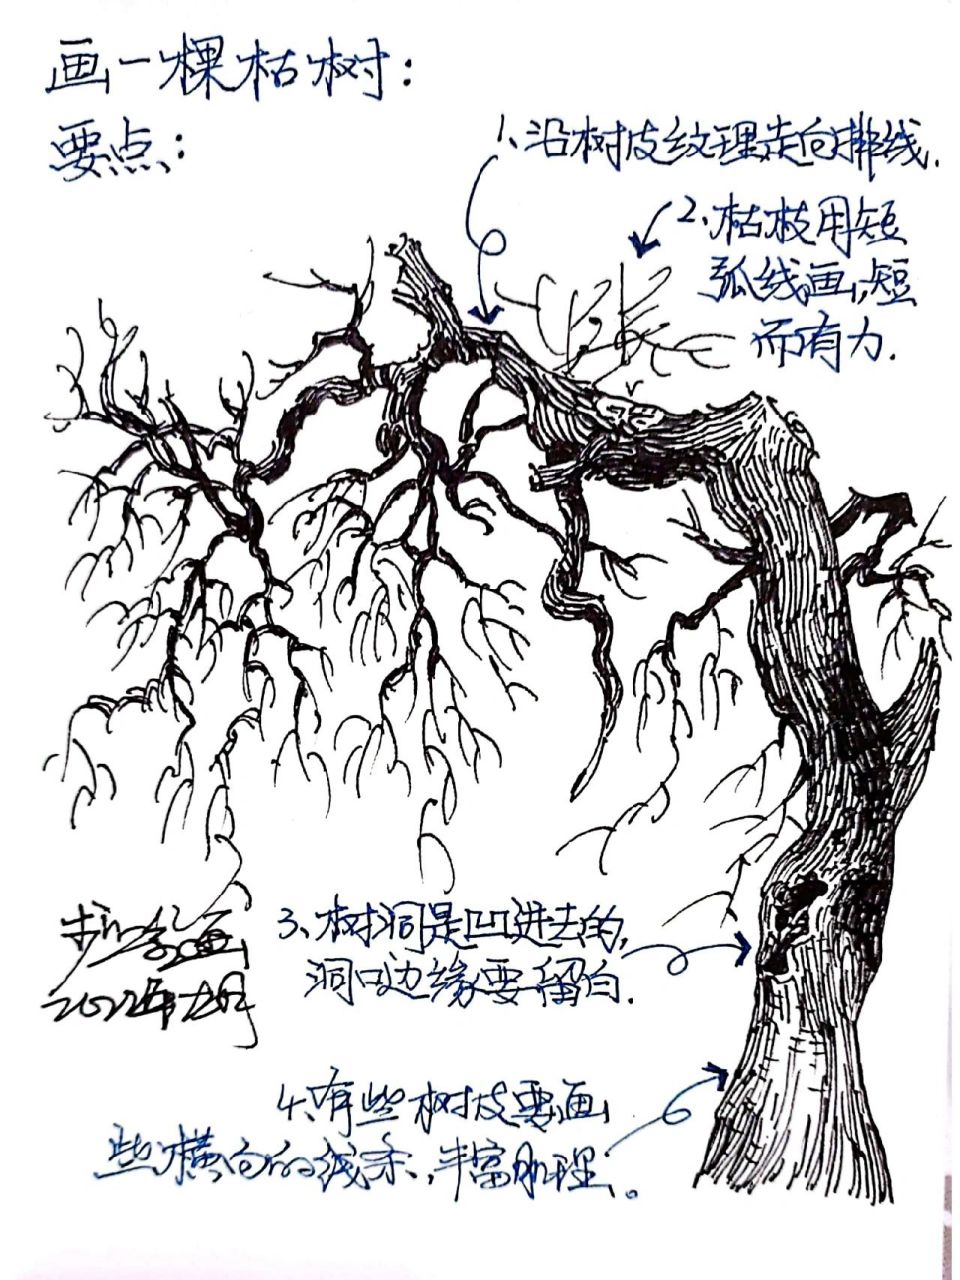 画一棵枯树：
要点：
1、沿树皮纹理走向排线.
2、枯枝用短
弧线画,短
而有力.
3、树洞是凹进去的,
洞口边缘要留白.
画
2022年
4、有些树皮要画
些横向的线条,丰富肌理。